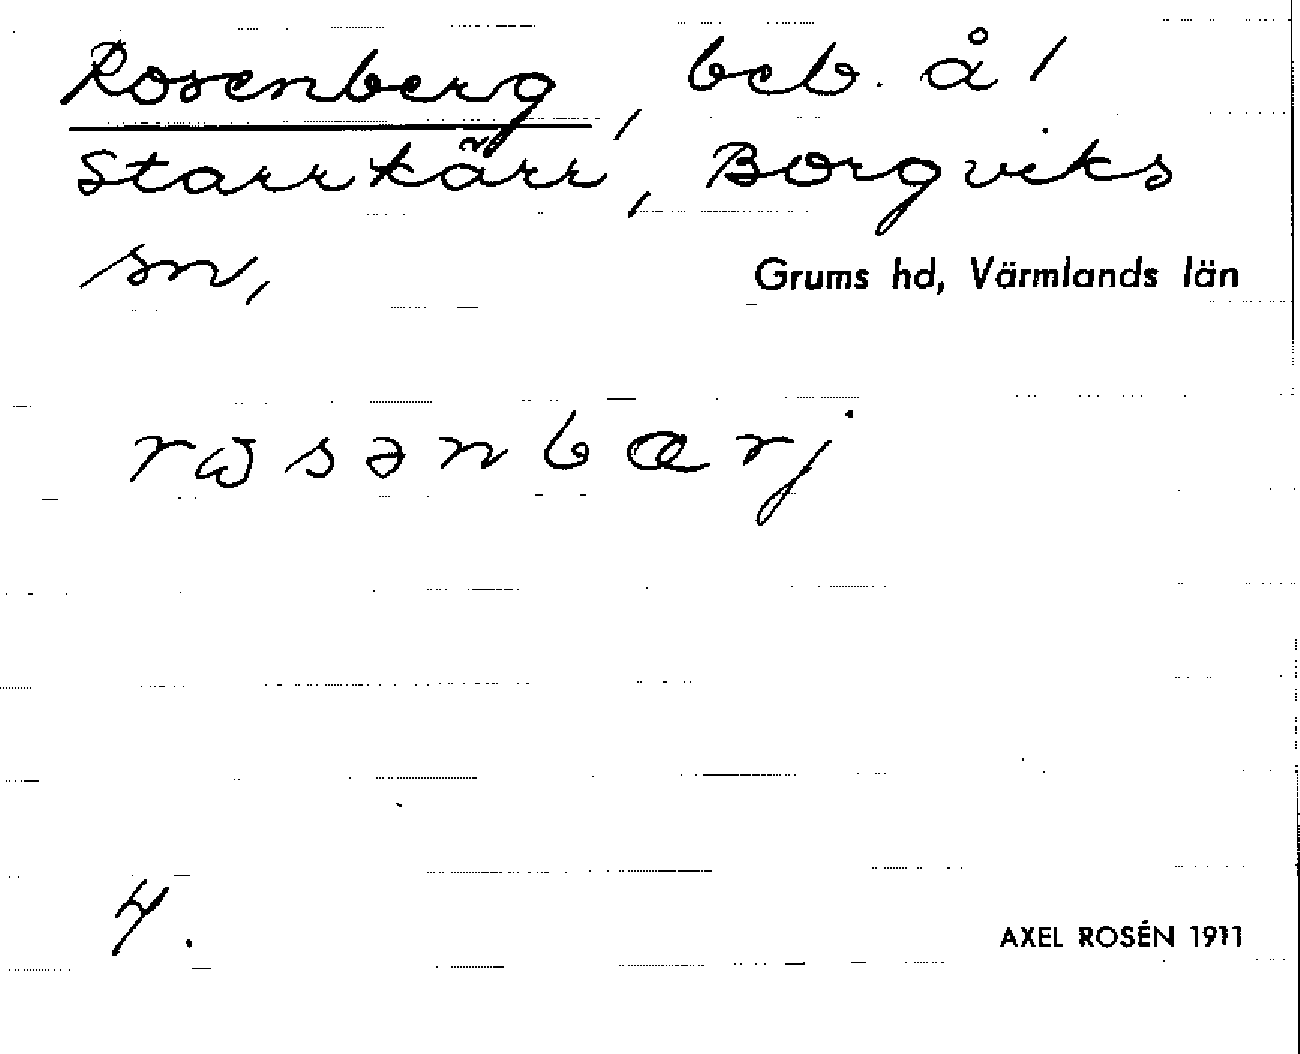 Rosenberg, beb. å /
Starrkärr, Borgviks
sn,
Grums hd, Värmlands län
rωsənbærj
4.
AXEL ROSÉN 1911